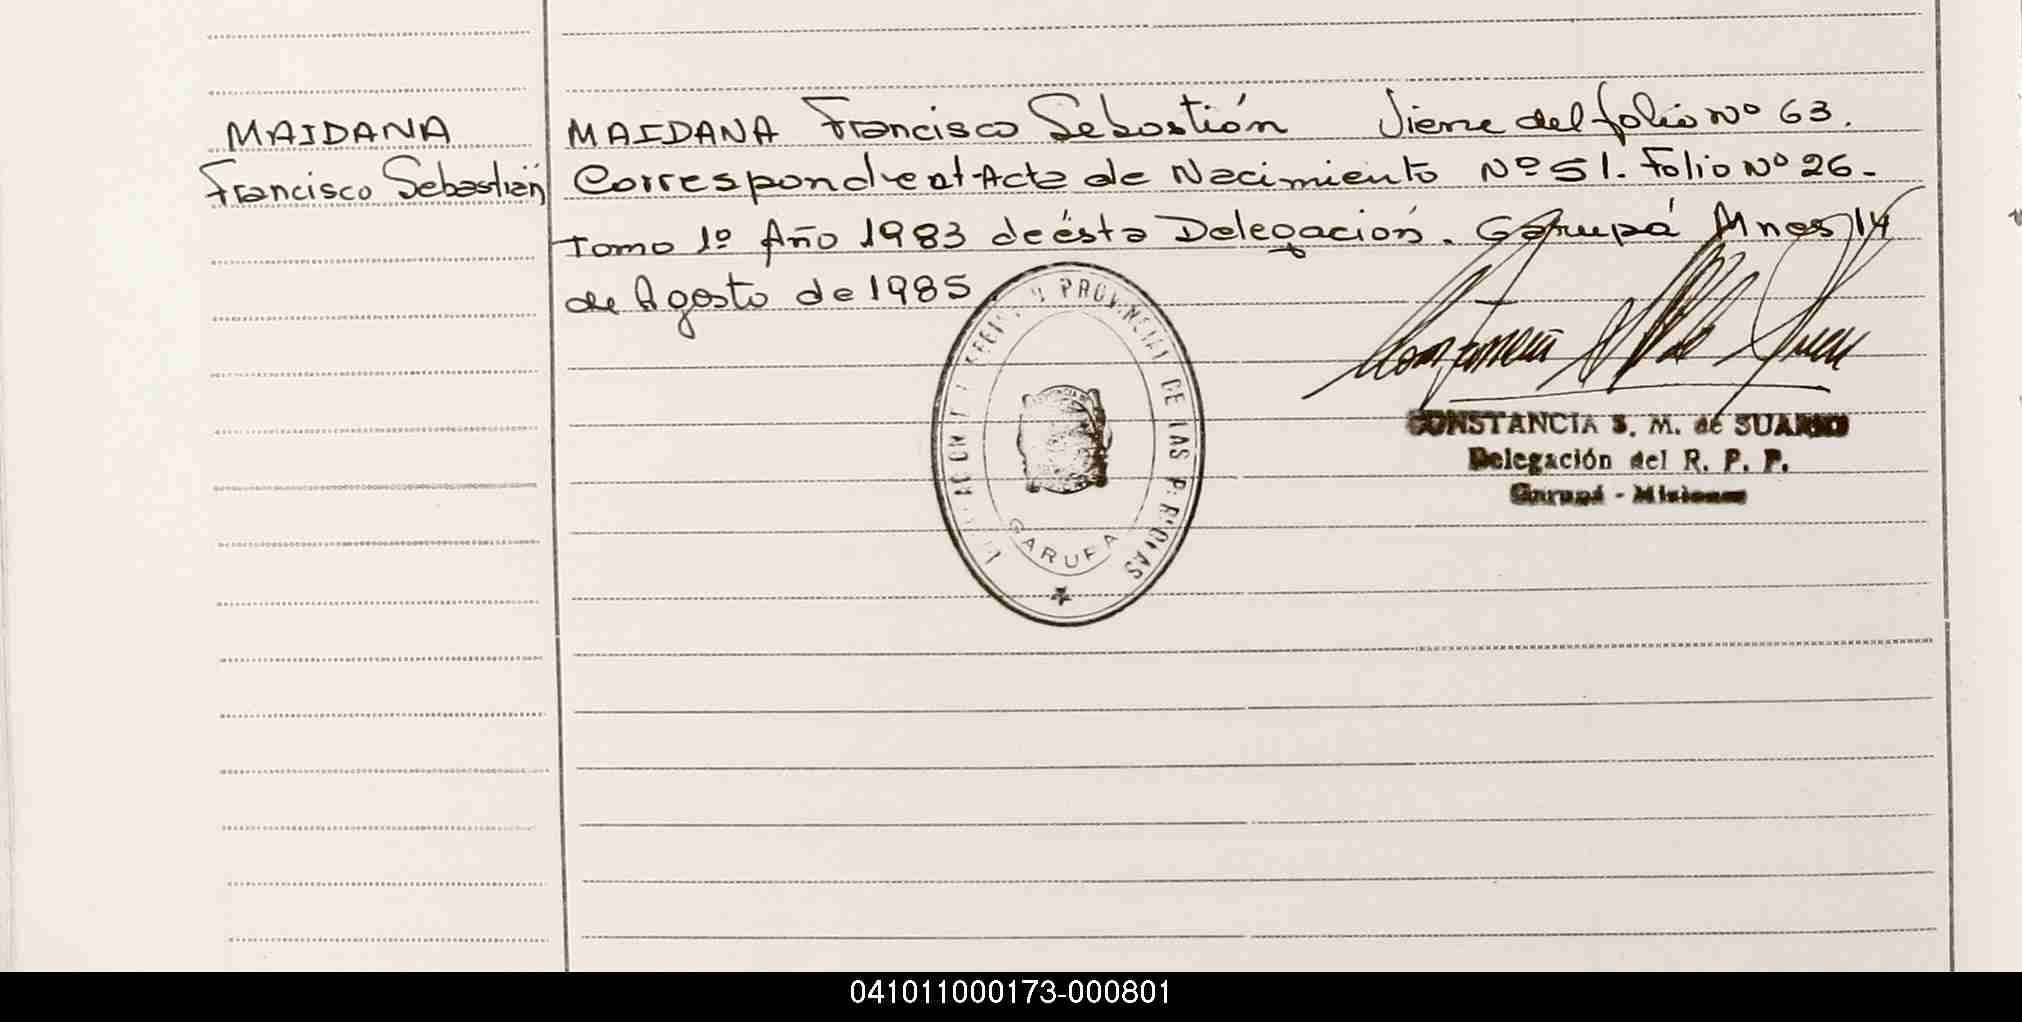 MAIDANA
Francisco Sebastián
MAIDANA Francisco Sebastión Viene del folio Nº 63.
Corresponde al Acta de Nacimiento Nº 51. Folio Nº 26.-
Tomo 1º Año 1983 de ésta Delegación. Garupá Mnes 14
de Agosto de 1985
PROVINCIAL DE LAS PERSONAS
GARUPA
CONSTANCIA S. M. de SUAREZ
Delegación del R. P. P.
Garupá - Misiones
041011000173-000801